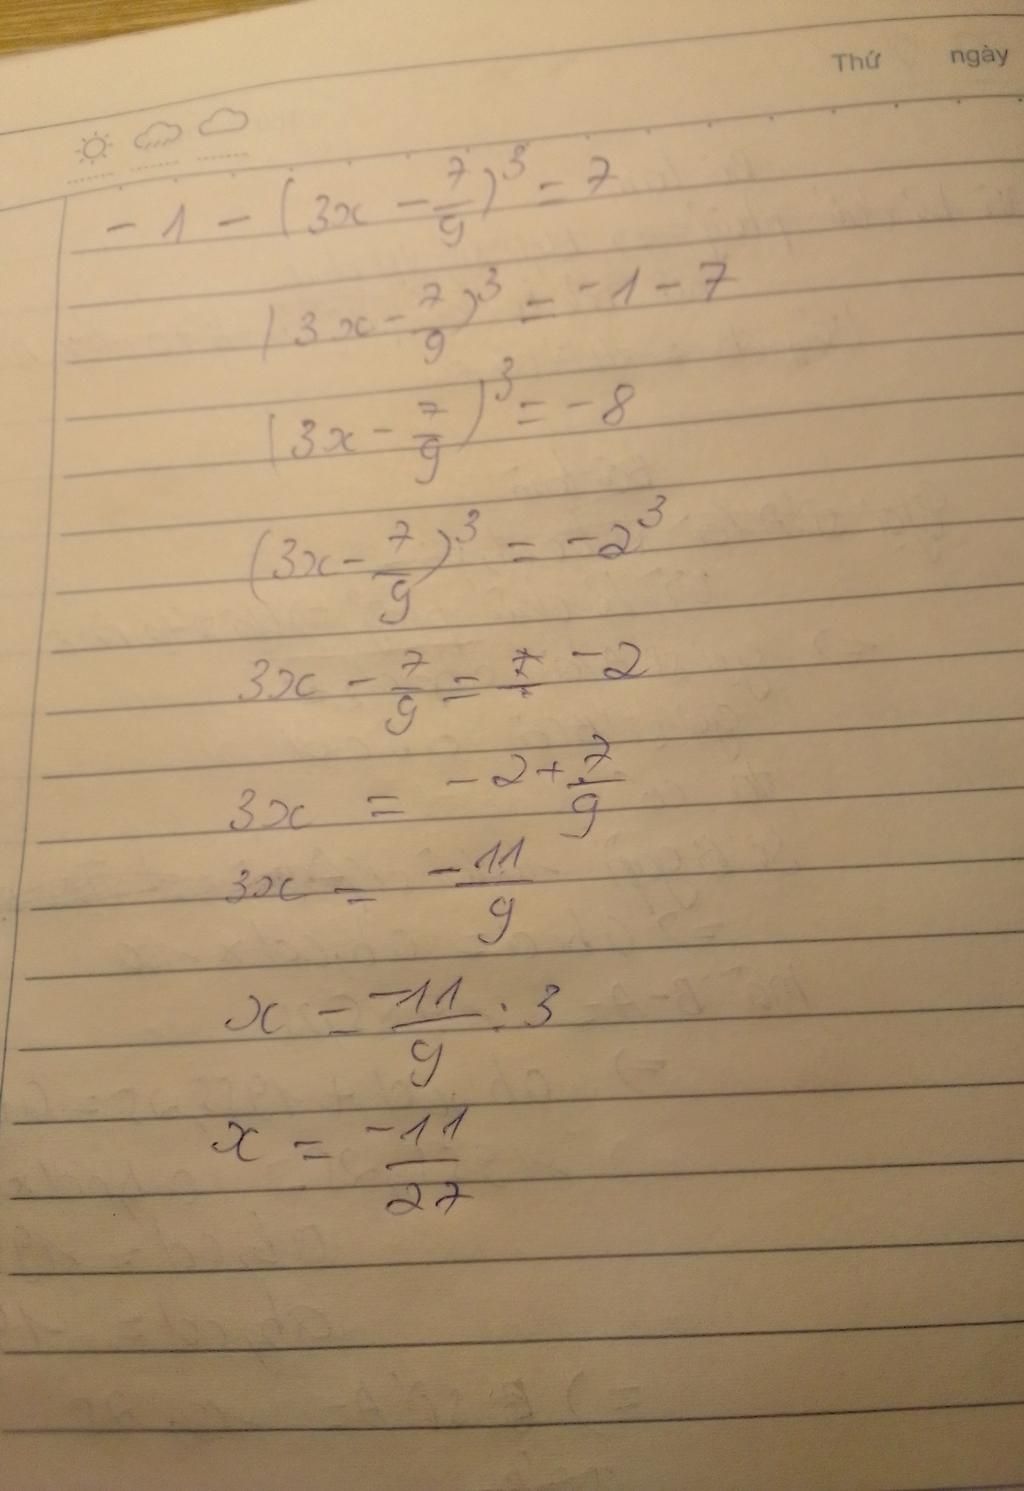 Thứ ngày
- 1 - (3x - 7/9)³ = 7
(3x - 7/9)³ = -1 - 7
(3x - 7/9)³ = -8
(3x - 7/9)³ = -2³
3x - 7/9 = -2
3x = -2 + 7/9
3x = -11/9
x = -11/9 : 3
x = -11/27